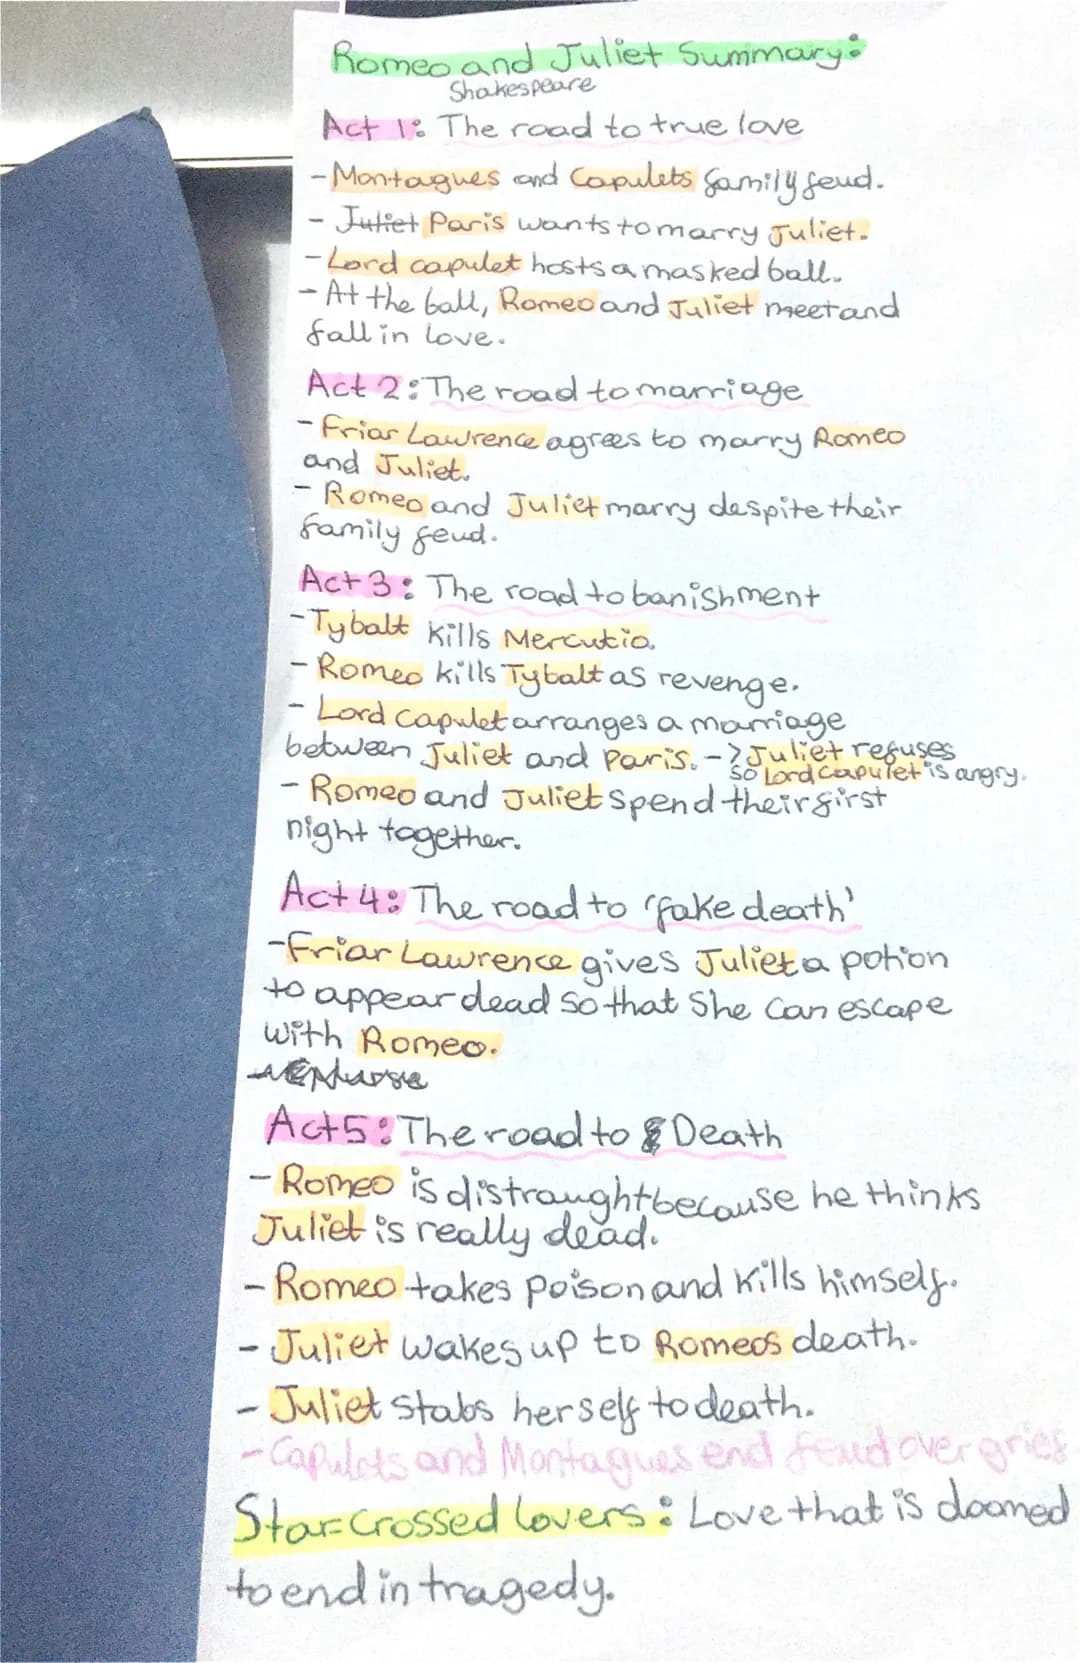 Romeo and Juliet Summary:
Shakespeare
Act 1: The road to true love
- Montagues and Capulets family feud.
- Juliet Paris wants to marry Juliet.
- Lord capulet hosts a masked ball.
- At the ball, Romeo and Juliet meet and
fall in love.
Act 2: The road to marriage
- Friar Lawrence agrees to marry Romeo
and Juliet.
- Romeo and Juliet marry despite their
family feud.
Act 3: The road to banishment
- Tybalt kills Mercutio.
- Romeo kills Tybalt as revenge.
- Lord capulet arranges a marriage
between Juliet and Paris. -> Juliet refuses
so Lord capulet is angry.
- Romeo and Juliet spend their first
night together.
Act 4: The road to 'fake death'
- Friar Lawrence gives Juliet a potion
to appear dead so that she can escape
with Romeo.
Act 5: The road to Death
- Romeo is distraught because he thinks
Juliet is really dead.
- Romeo takes poison and kills himself.
- Juliet wakes up to Romeos death.
- Juliet stabs herself to death.
- Capulets and Montagues end feud over grief
Star-Crossed lovers: Love that is doomed
to end in tragedy.